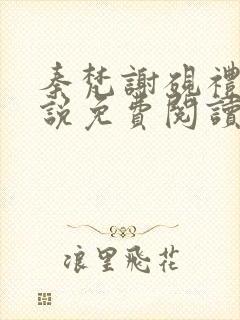 秦梵謝硯禮
說免費閱讀
浪里飛花